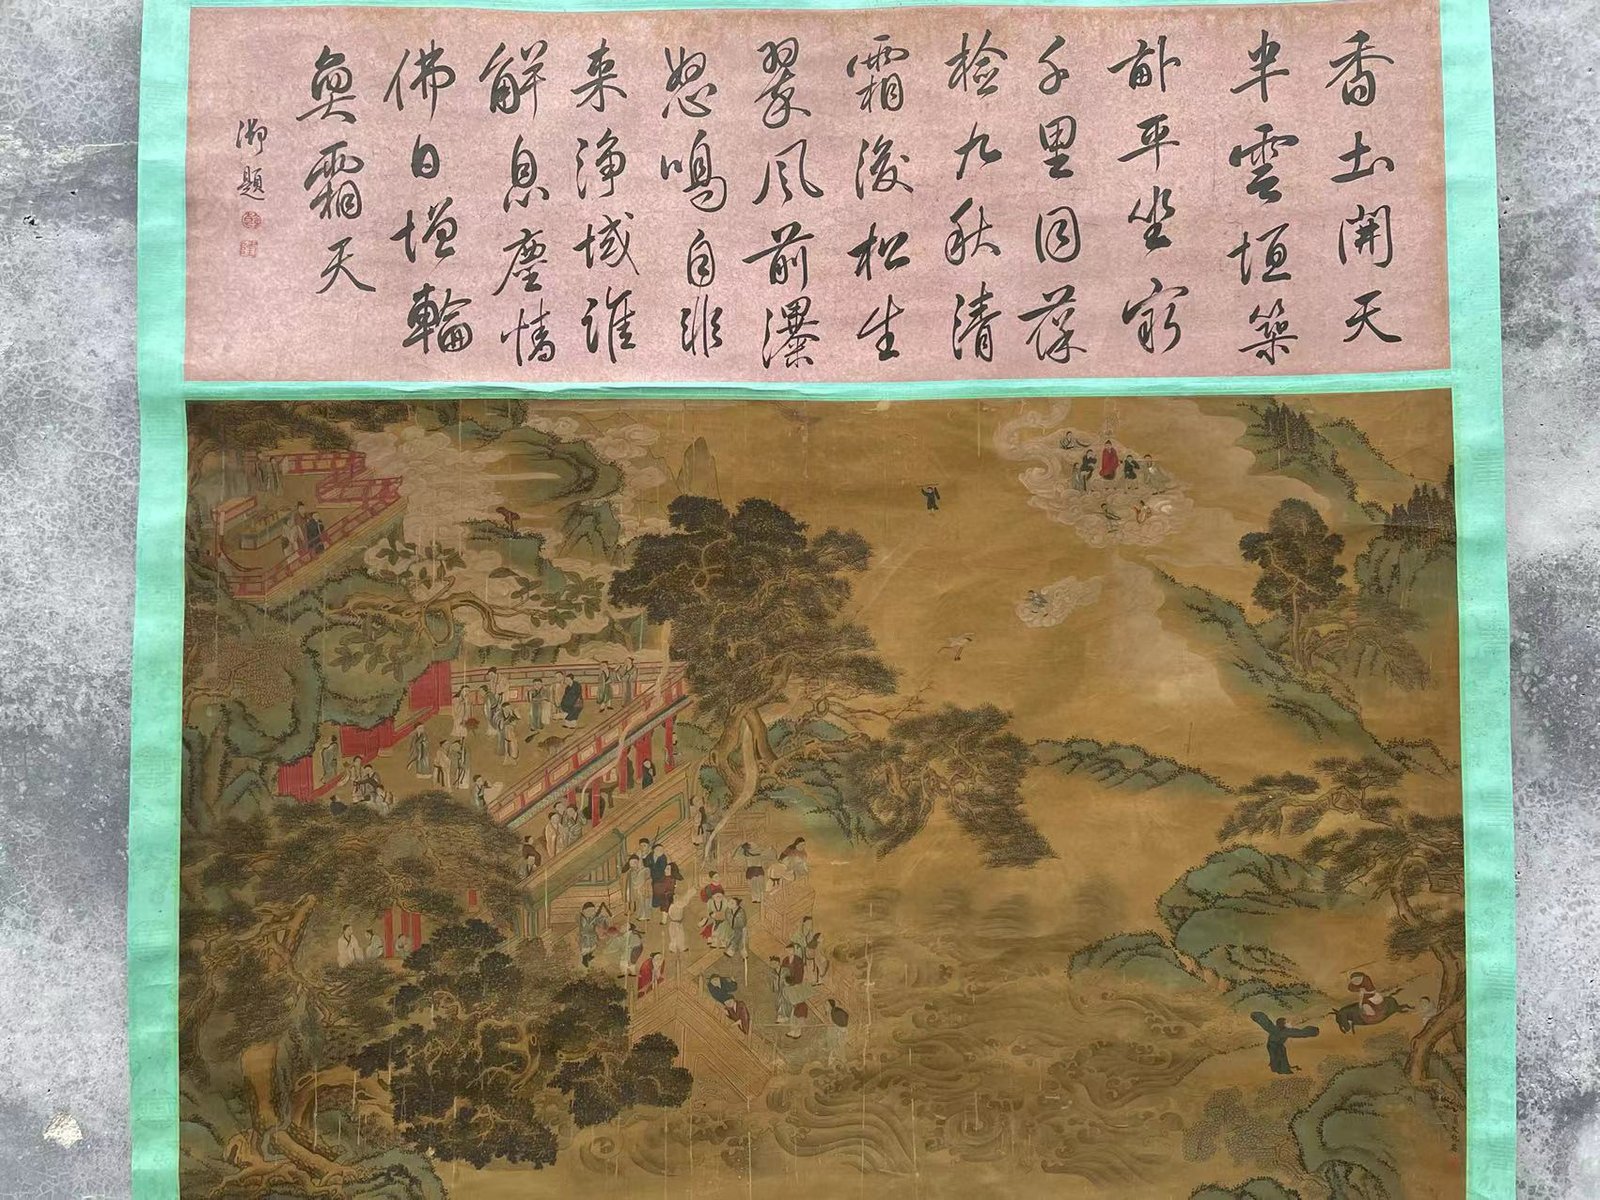 香土開天
半雲垣築
畝平坐窮
千里目葆
檢九秋清
霜後松生
翠風前瀑
怒鳴自非
来淨域誰
解息塵情
佛日增輪
奐霜天
御題